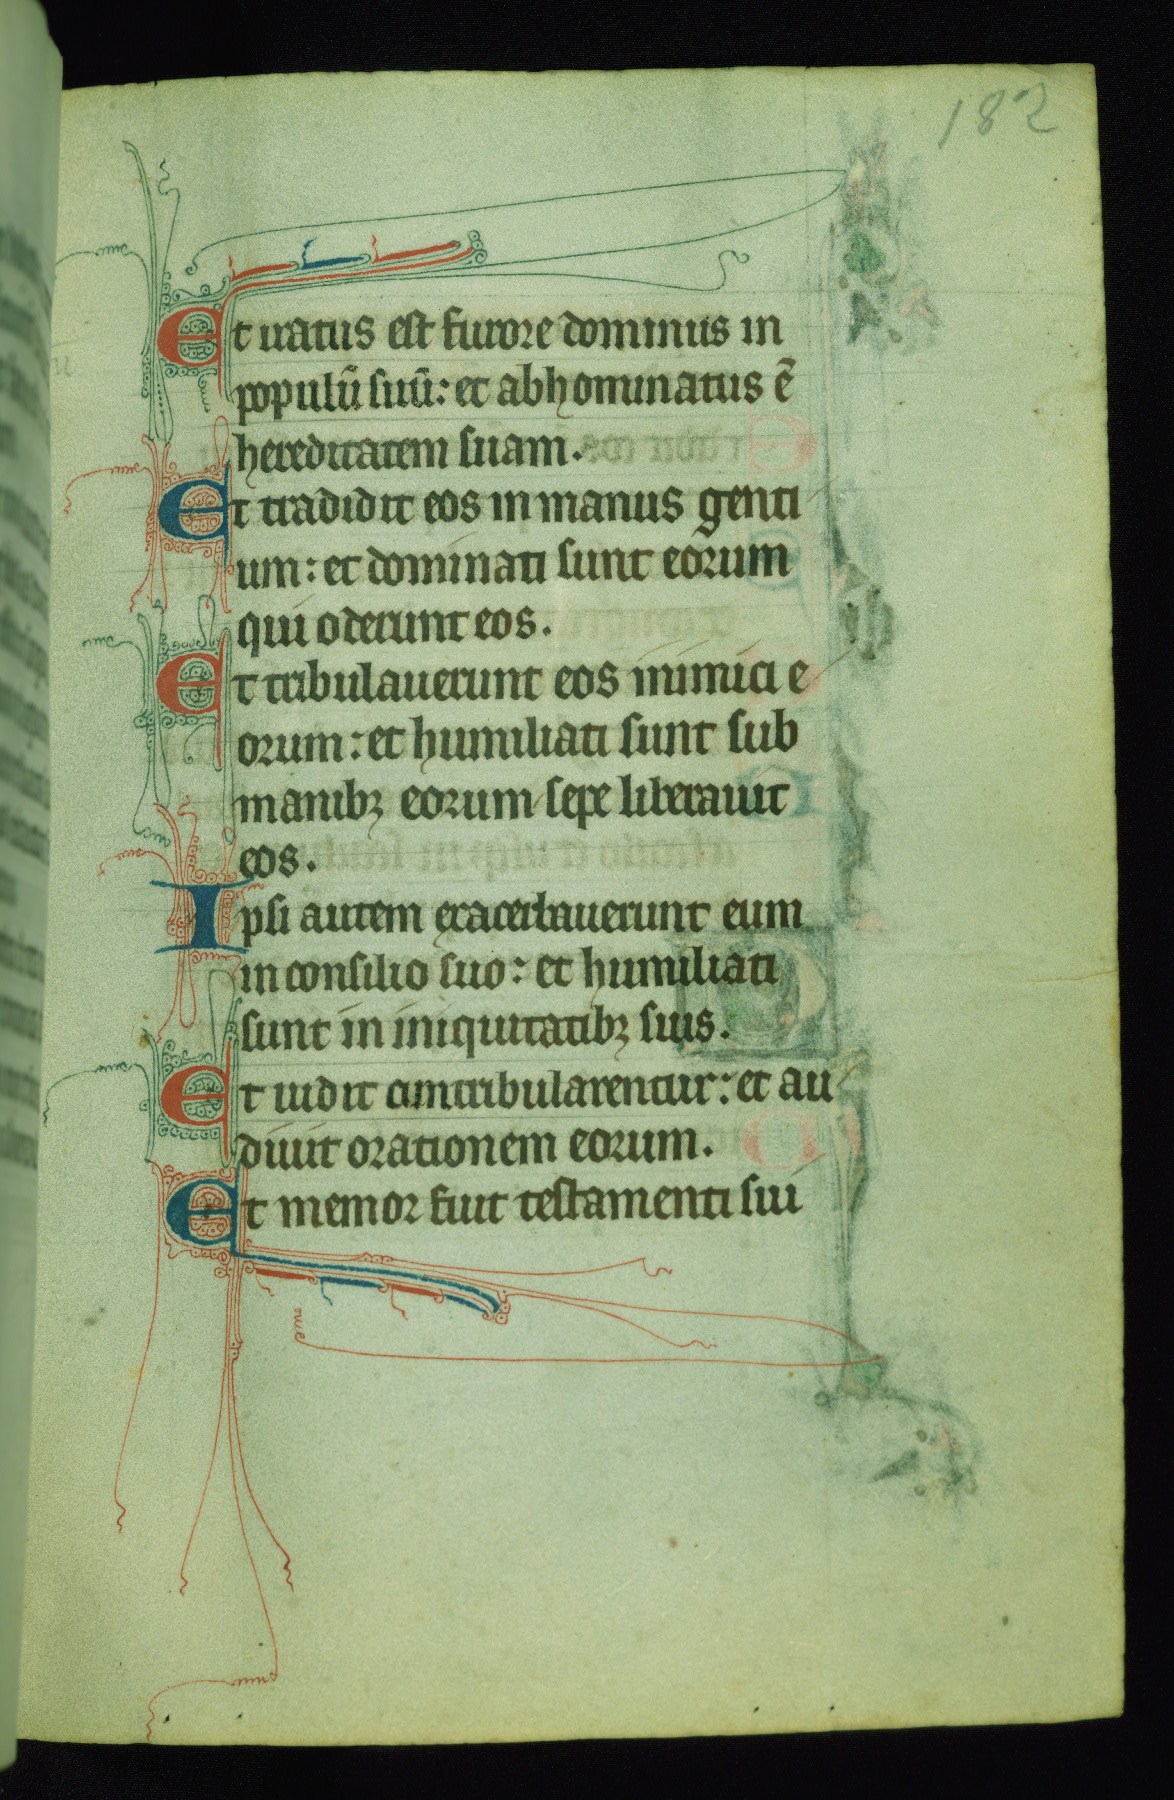 182
Et iratus est furore dominus in
populū suū: et abhominatus ē
hereditatem suam.
Et tradidit eos in manus genti
um: et dominati sunt eorum
qui oderunt eos.
Et tribulauerunt eos inimici e
orum: et humiliati sunt sub
manibꝫ eorum sepe liberauit
eos.
Ipsi autem exacerbauerunt eum
in consilio suo: et humiliati
sunt in iniquitatibꝫ suis.
Et uidit cum tribularentur: et au
diuit orationem eorum.
Et memor fuit testamenti sui